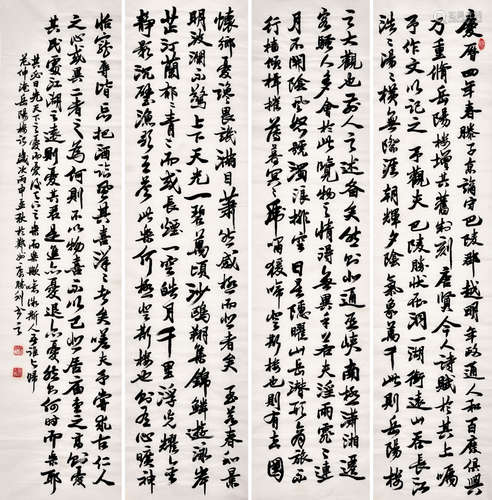 慶曆四年春滕子京謫守巴陵郡越明年人和百廢俱興
乃重脩岳陽樓增其舊制刻唐賢今人詩賦於其上囑
予作文以記之予觀夫巴陵勝狀在洞一湖銜遠山吞長江
浩浩湯湯橫無際涯朝輝夕陰氣象萬千此則岳陽樓
之大觀也前人之述備矣然則北通巫峽南極瀟湘遷
客騷人多會於此覽物之情得無異乎若夫淫雨霏霏連
月不開陰風怒號濁浪排空日星隱曜山岳潛形商旅不
行檣傾楫摧薄暮冥冥虎嘯猿啼登斯樓也則有去國
懷鄉憂讒畏譏滿目蕭然感極而悲者矣至若春和景
明波瀾不驚上下天光一碧萬頃沙鷗翔集錦鱗遊泳岸
芷汀蘭郁郁青青而或長煙一空皓月千里浮光耀金
靜影沉璧漁歌互答此樂何極登斯樓也則有心曠神
怡寵辱皆忘把酒臨風其喜洋洋者矣嗟夫予嘗求古仁人
之心或異二者之為何則不以物喜不以己悲居廟堂之高則憂
其民處江湖之遠則憂其君是進亦憂退亦憂然則何時而樂耶
其必曰先天下之憂而憂後天下之樂而樂歟噫微斯人吾誰與歸
范仲淹岳陽樓記歲次丙申孟秋於鄭州勝利書